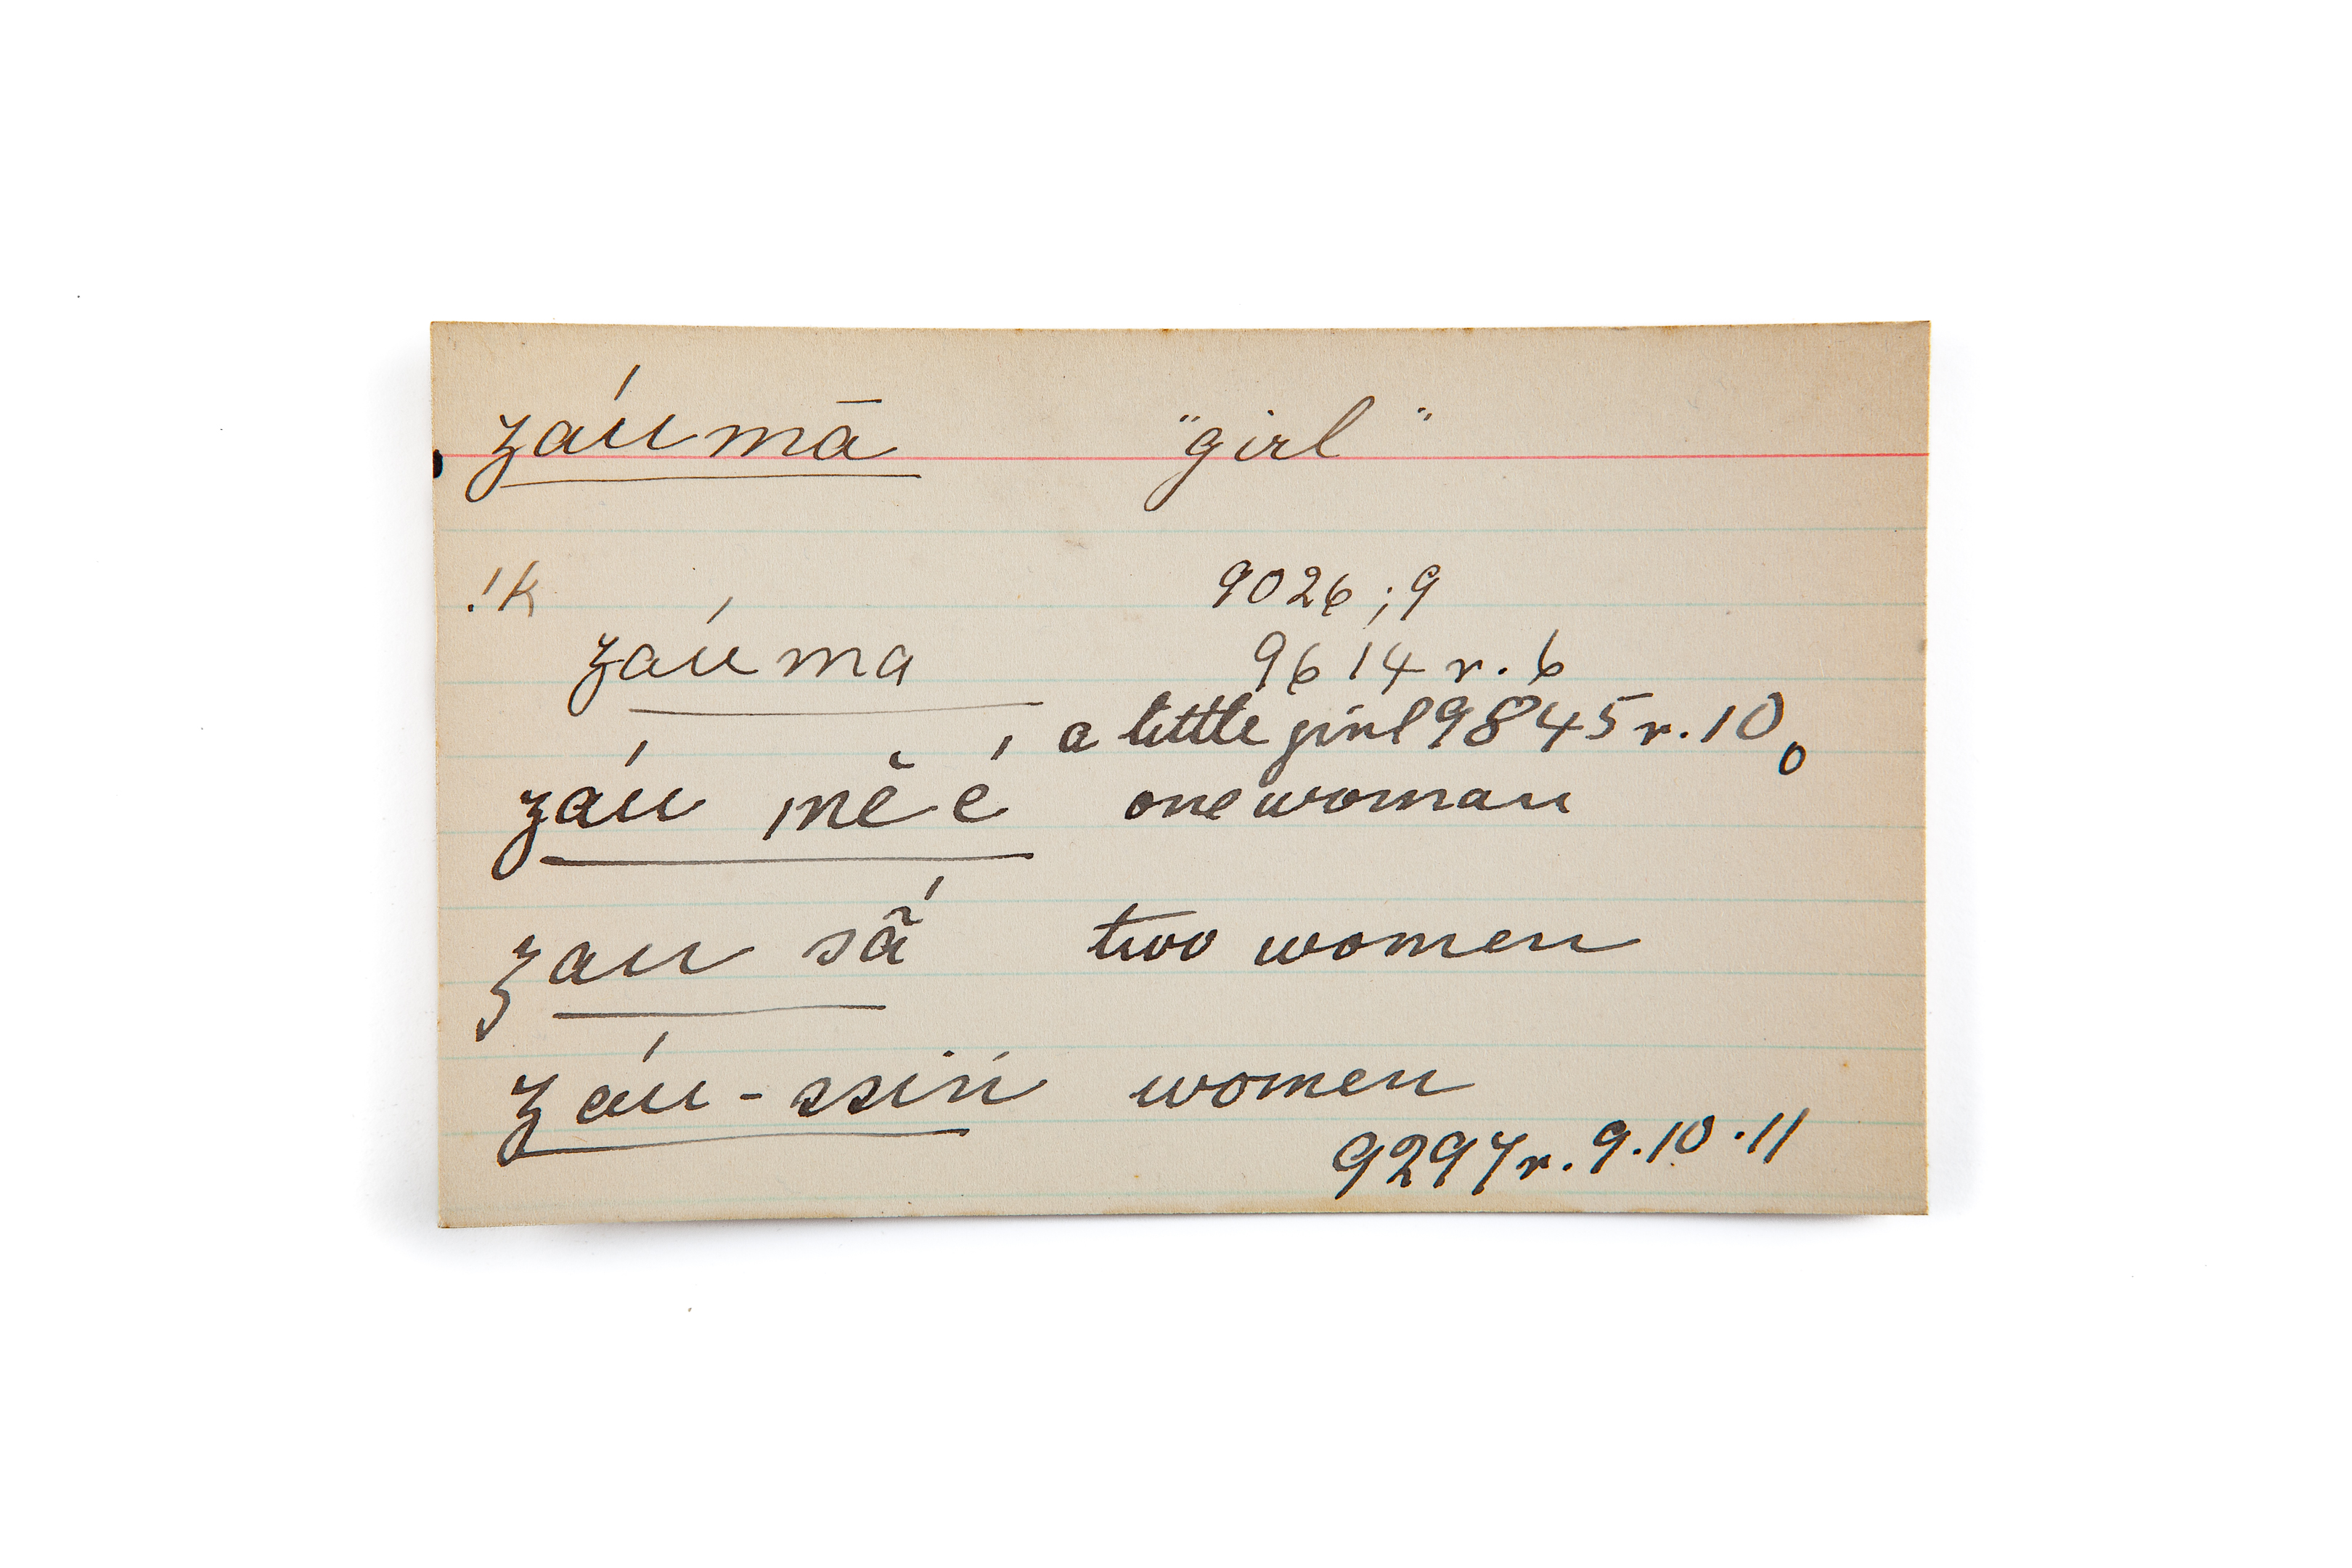 záu mā "girl"
!k 9026;9
záu ma 9614 r. 6
a little girl 9845 r. 10
záu mĕ é one woman
zau sã́ two women
záu-ssiń women
9297 r. 9.10.11